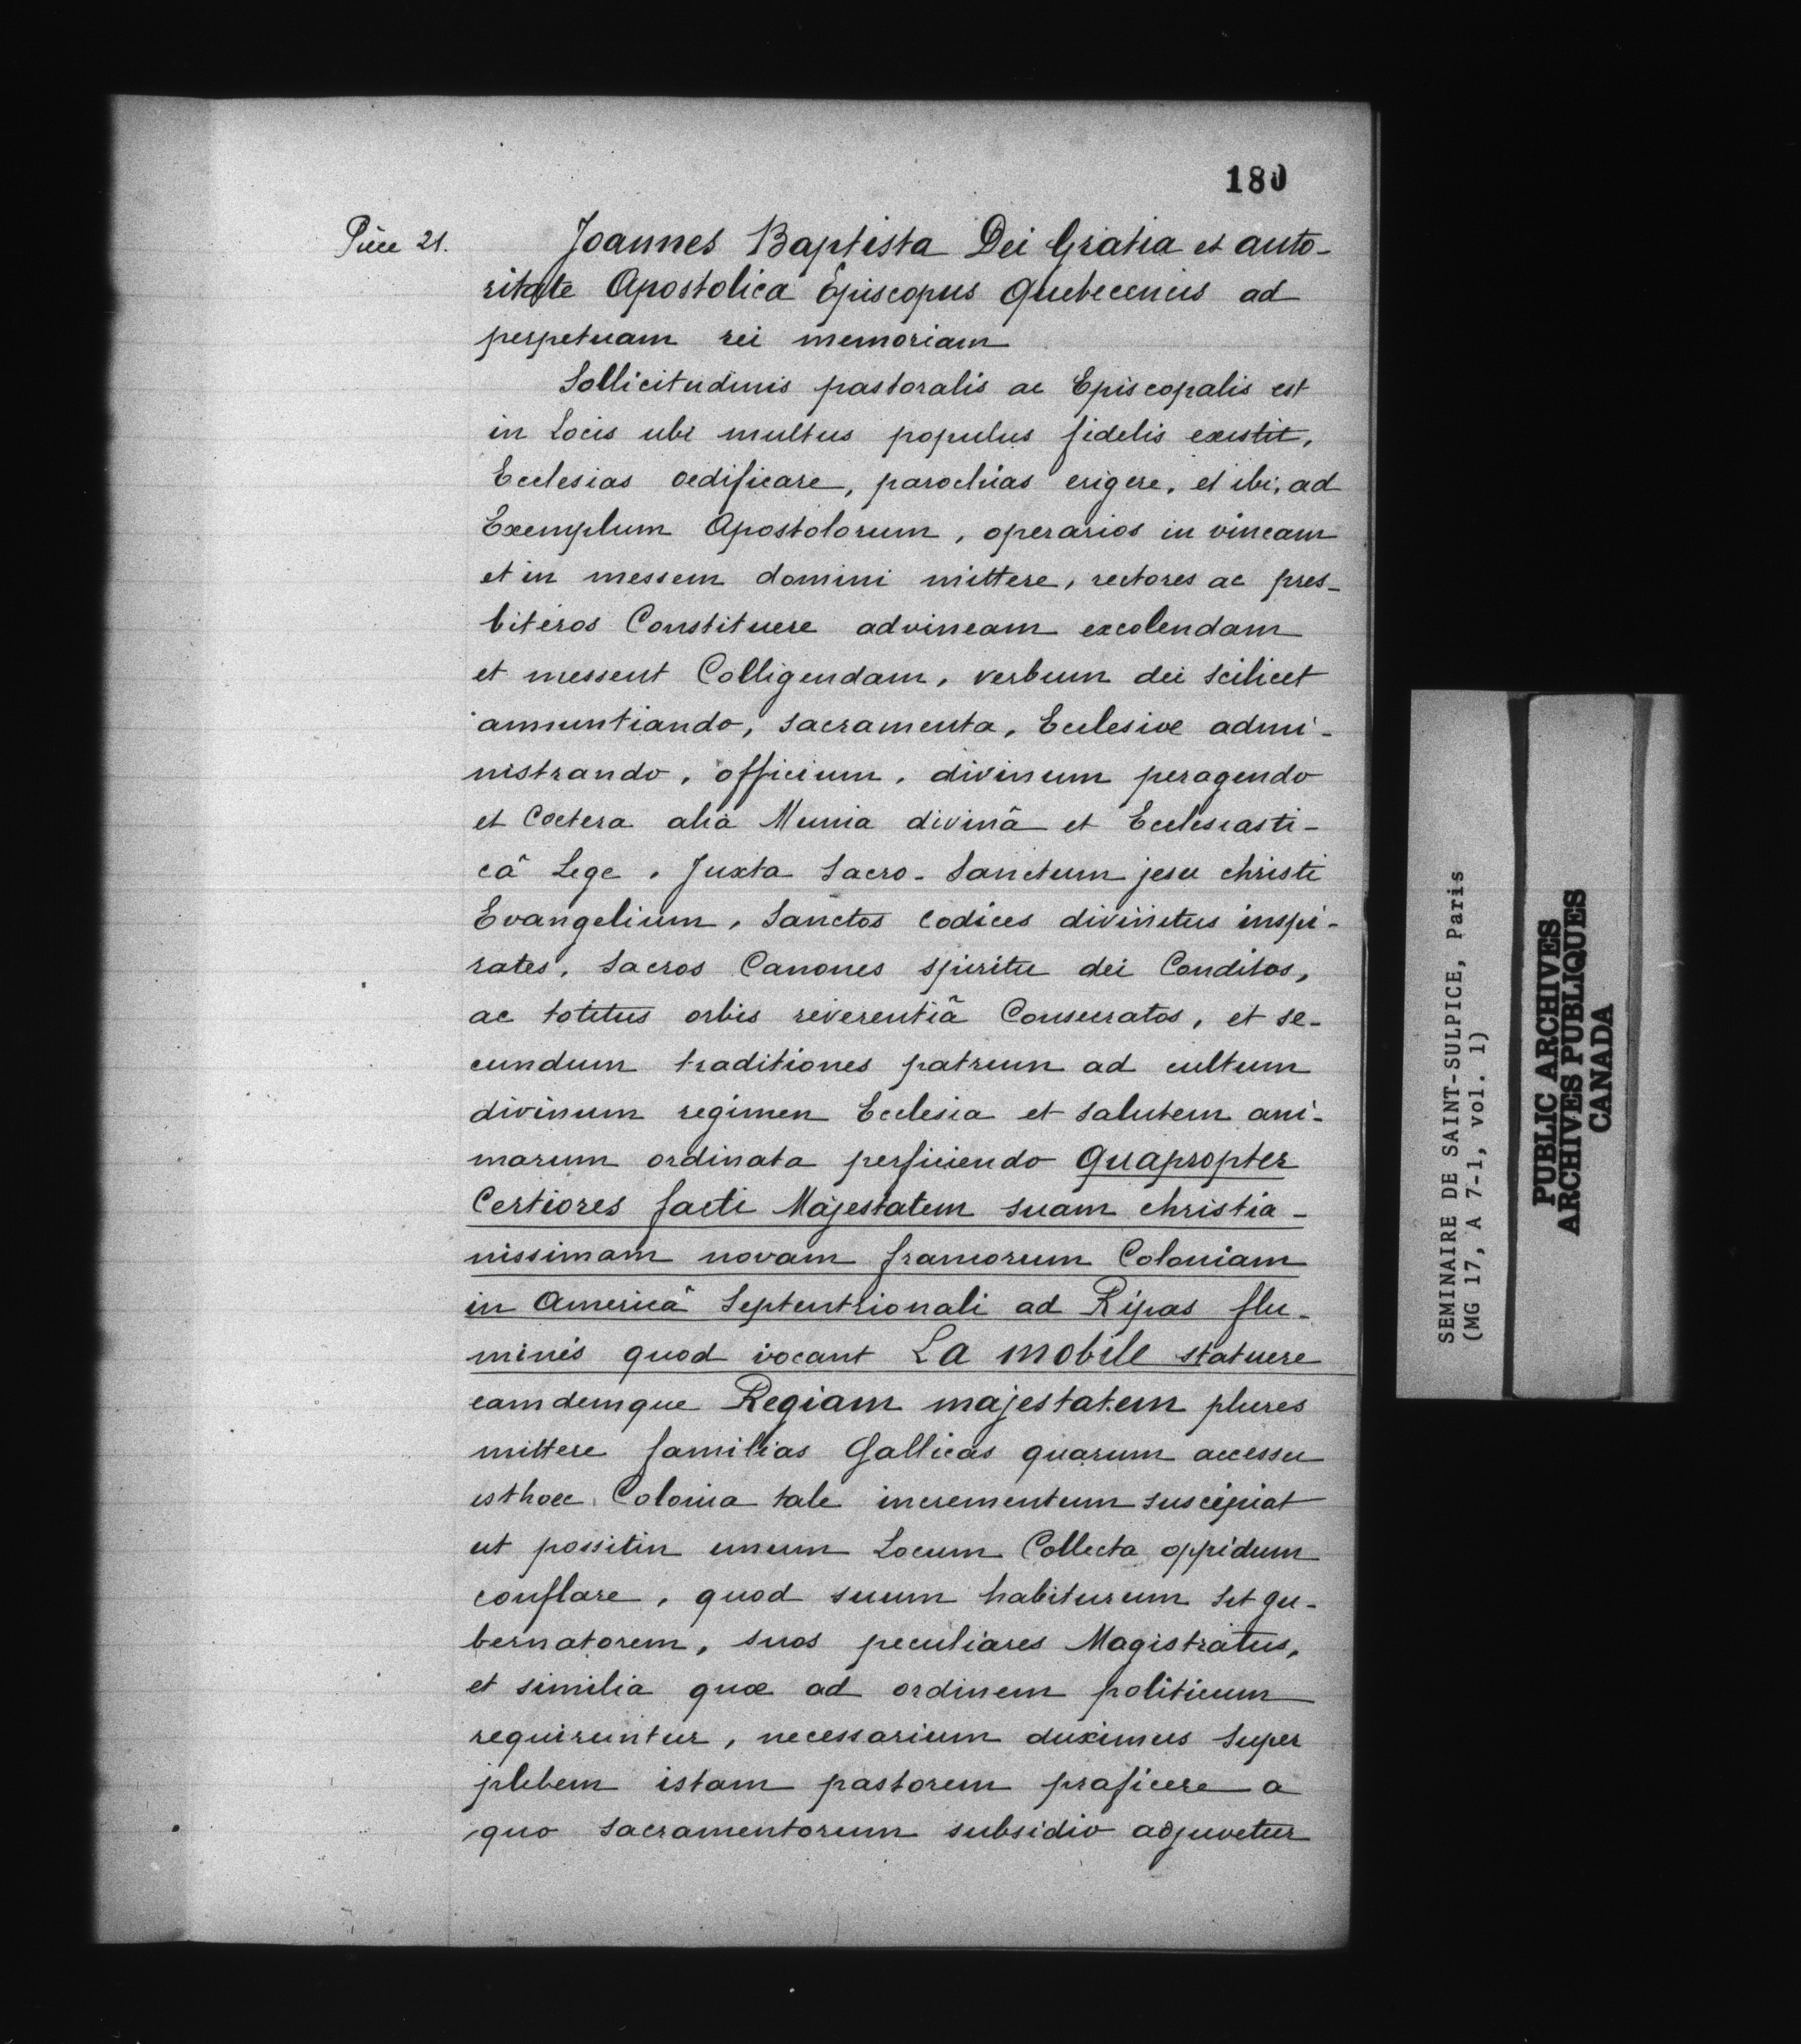 180
Pièce 21.
Joannes Baptista Dei Gratia et auto-
ritate Apostolica Episcopus Quebecencis ad
perpetuam rei memoriam
Sollicitudinis pastoralis ac Episcopalis est
in Locis ubi multus populus fidelis existit,
Ecclesias œdificare, parochias erigere, et ibi, ad
Exemplum Apostolorum, operarios in vineam
et in messem domini mittere, rectores ac pres-
biteros Constituere advineam excolendam
et messent Colligendam, verbum dei scilicet
annuntiando, sacramenta, Eclesiœ admi-
nistrando, officium, divinum peragendo
et Cœtera alia Munia divinâ et Ecclesiasti-
câ Lege, Juxta Sacro-Sanctum jesu christi
Evangelium, Sanctos codices divinitus inspi-
rates, Sacros Canones spiritu dei Conditos,
ac totitus orbis reverentiâ Consecratos, et se-
cundum traditiones patrum ad cultum
divinum regimen Ecclesia et salutem ani-
marum ordinata perficiendo Quapropter
Certiores facti Majestatem suam christia-
nissimam novam francorum Coloniam
in Americâ Septentrionali ad Ripas flu-
minis quod vocant La mobile statuere
eamdemque Regiam majestatem plures
mittere familias Gallicas quarum accessu
isthœc Colonia tale incrementum suscipiat
ut possitin unum Locum Collecta oppidum
conflare, quod suum habiturum sit gu-
bernatorem, suos peculiares Magistratus,
et similia quœ ad ordinem politicum
requiruntur, necessarium duximus super
plebem istam pastorem praficere a
quo sacramentorum subsidio adjuvetur
SEMINAIRE DE SAINT-SULPICE, Paris
(MG 17, A 7-1, vol. 1)
PUBLIC ARCHIVES
ARCHIVES PUBLIQUES
CANADA